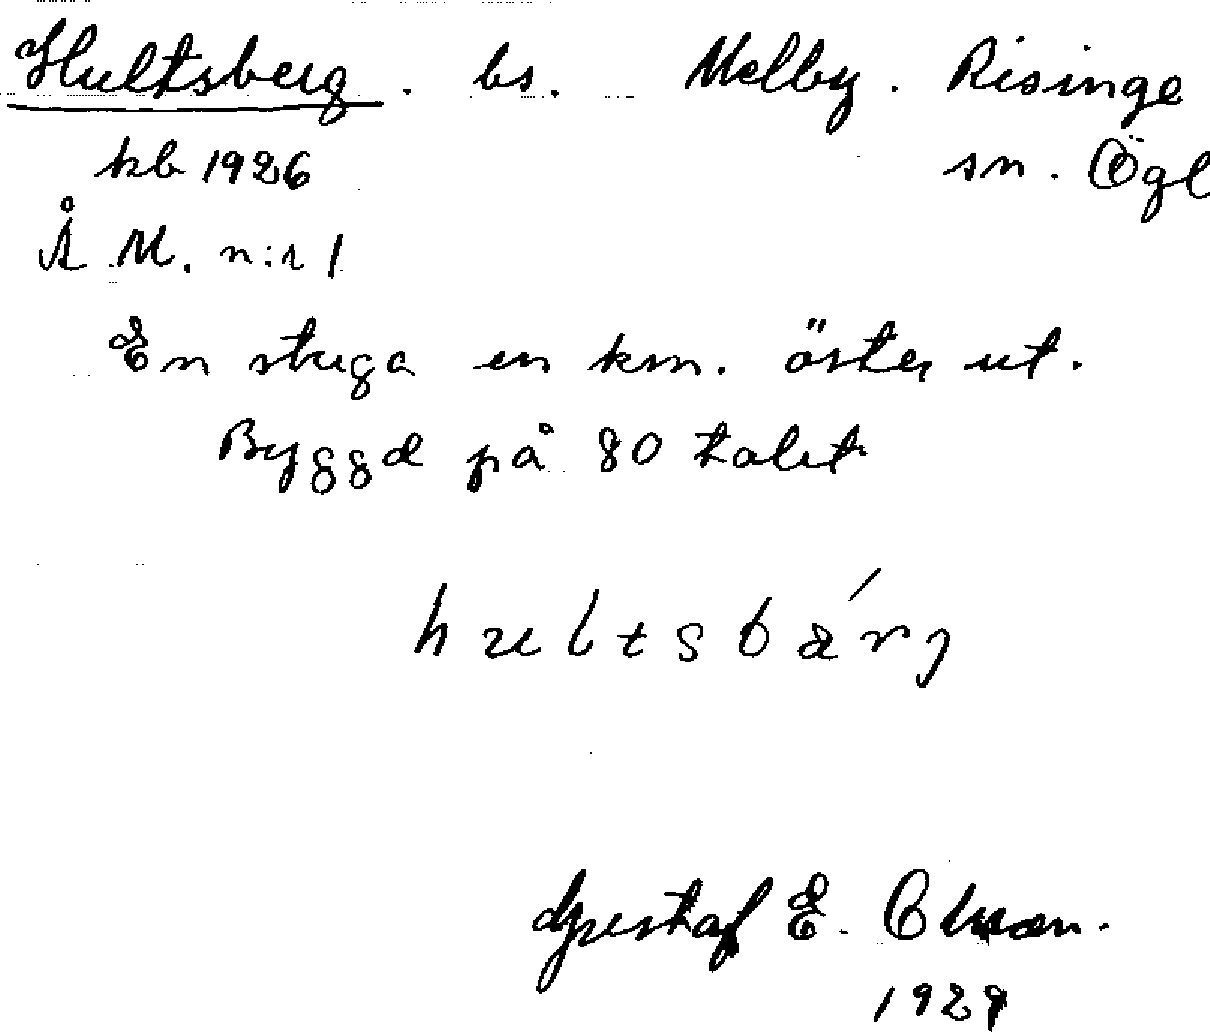 Hultsberg. bs. Melby. Risinge
kb 1926 sn. Ögl
Å M. n:r 1
En stuga en km. öster ut.
Byggd på 80 talet
hultsbärj
Gustaf E. Olsson.